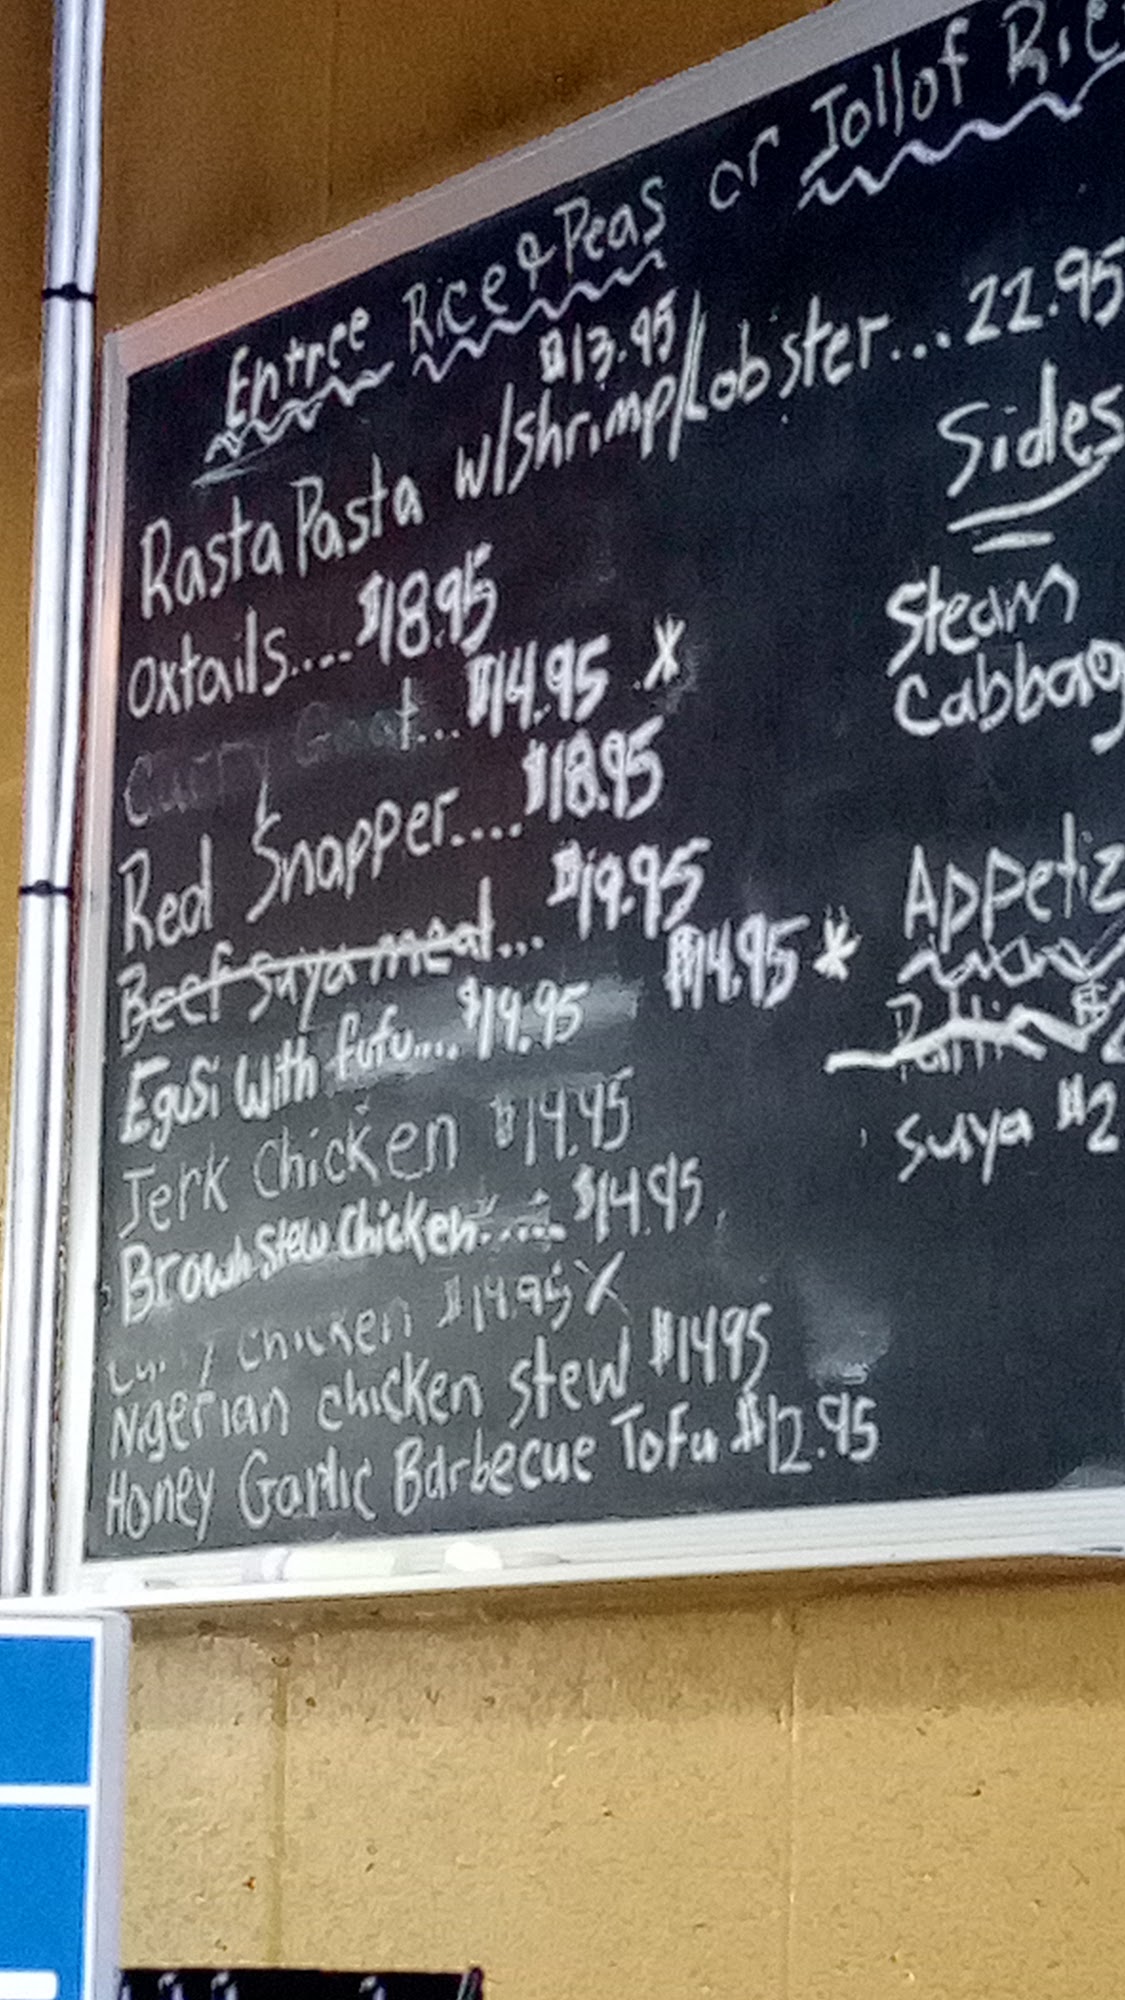 Entree Rice & Peas or Jollof Ric
$13.95
Rasta Pasta w/shrimp/Lobster... 22.95
Oxtails.... $18.95
Curry Goat... $14.95 X
Red Snapper.... $18.95
Beef suya meal... $19.95
$14.95 *
Egusi With fufu.... $19.95
Jerk Chicken $14.95
Brown stew chicken..... $14.95
Chicken $14.95 X
Nigerian chicken stew $1495
Honey Garlic Barbecue Tofu $12.95
Sides
Steam
Cabbag
Appetiz
Suya $2